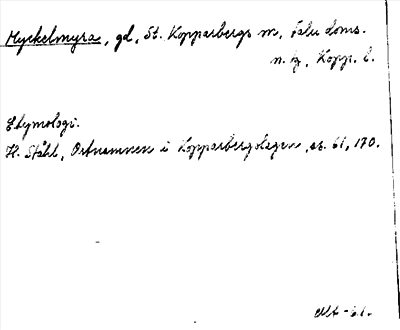 Myckelmyra, gd, St. Kopparbergs sn, Falu doms.
n. hg, Kopp. l.
Etymologi.
H. Ståhl, Ortnamnen i Kopparbergslagen, ss. 61, 170.